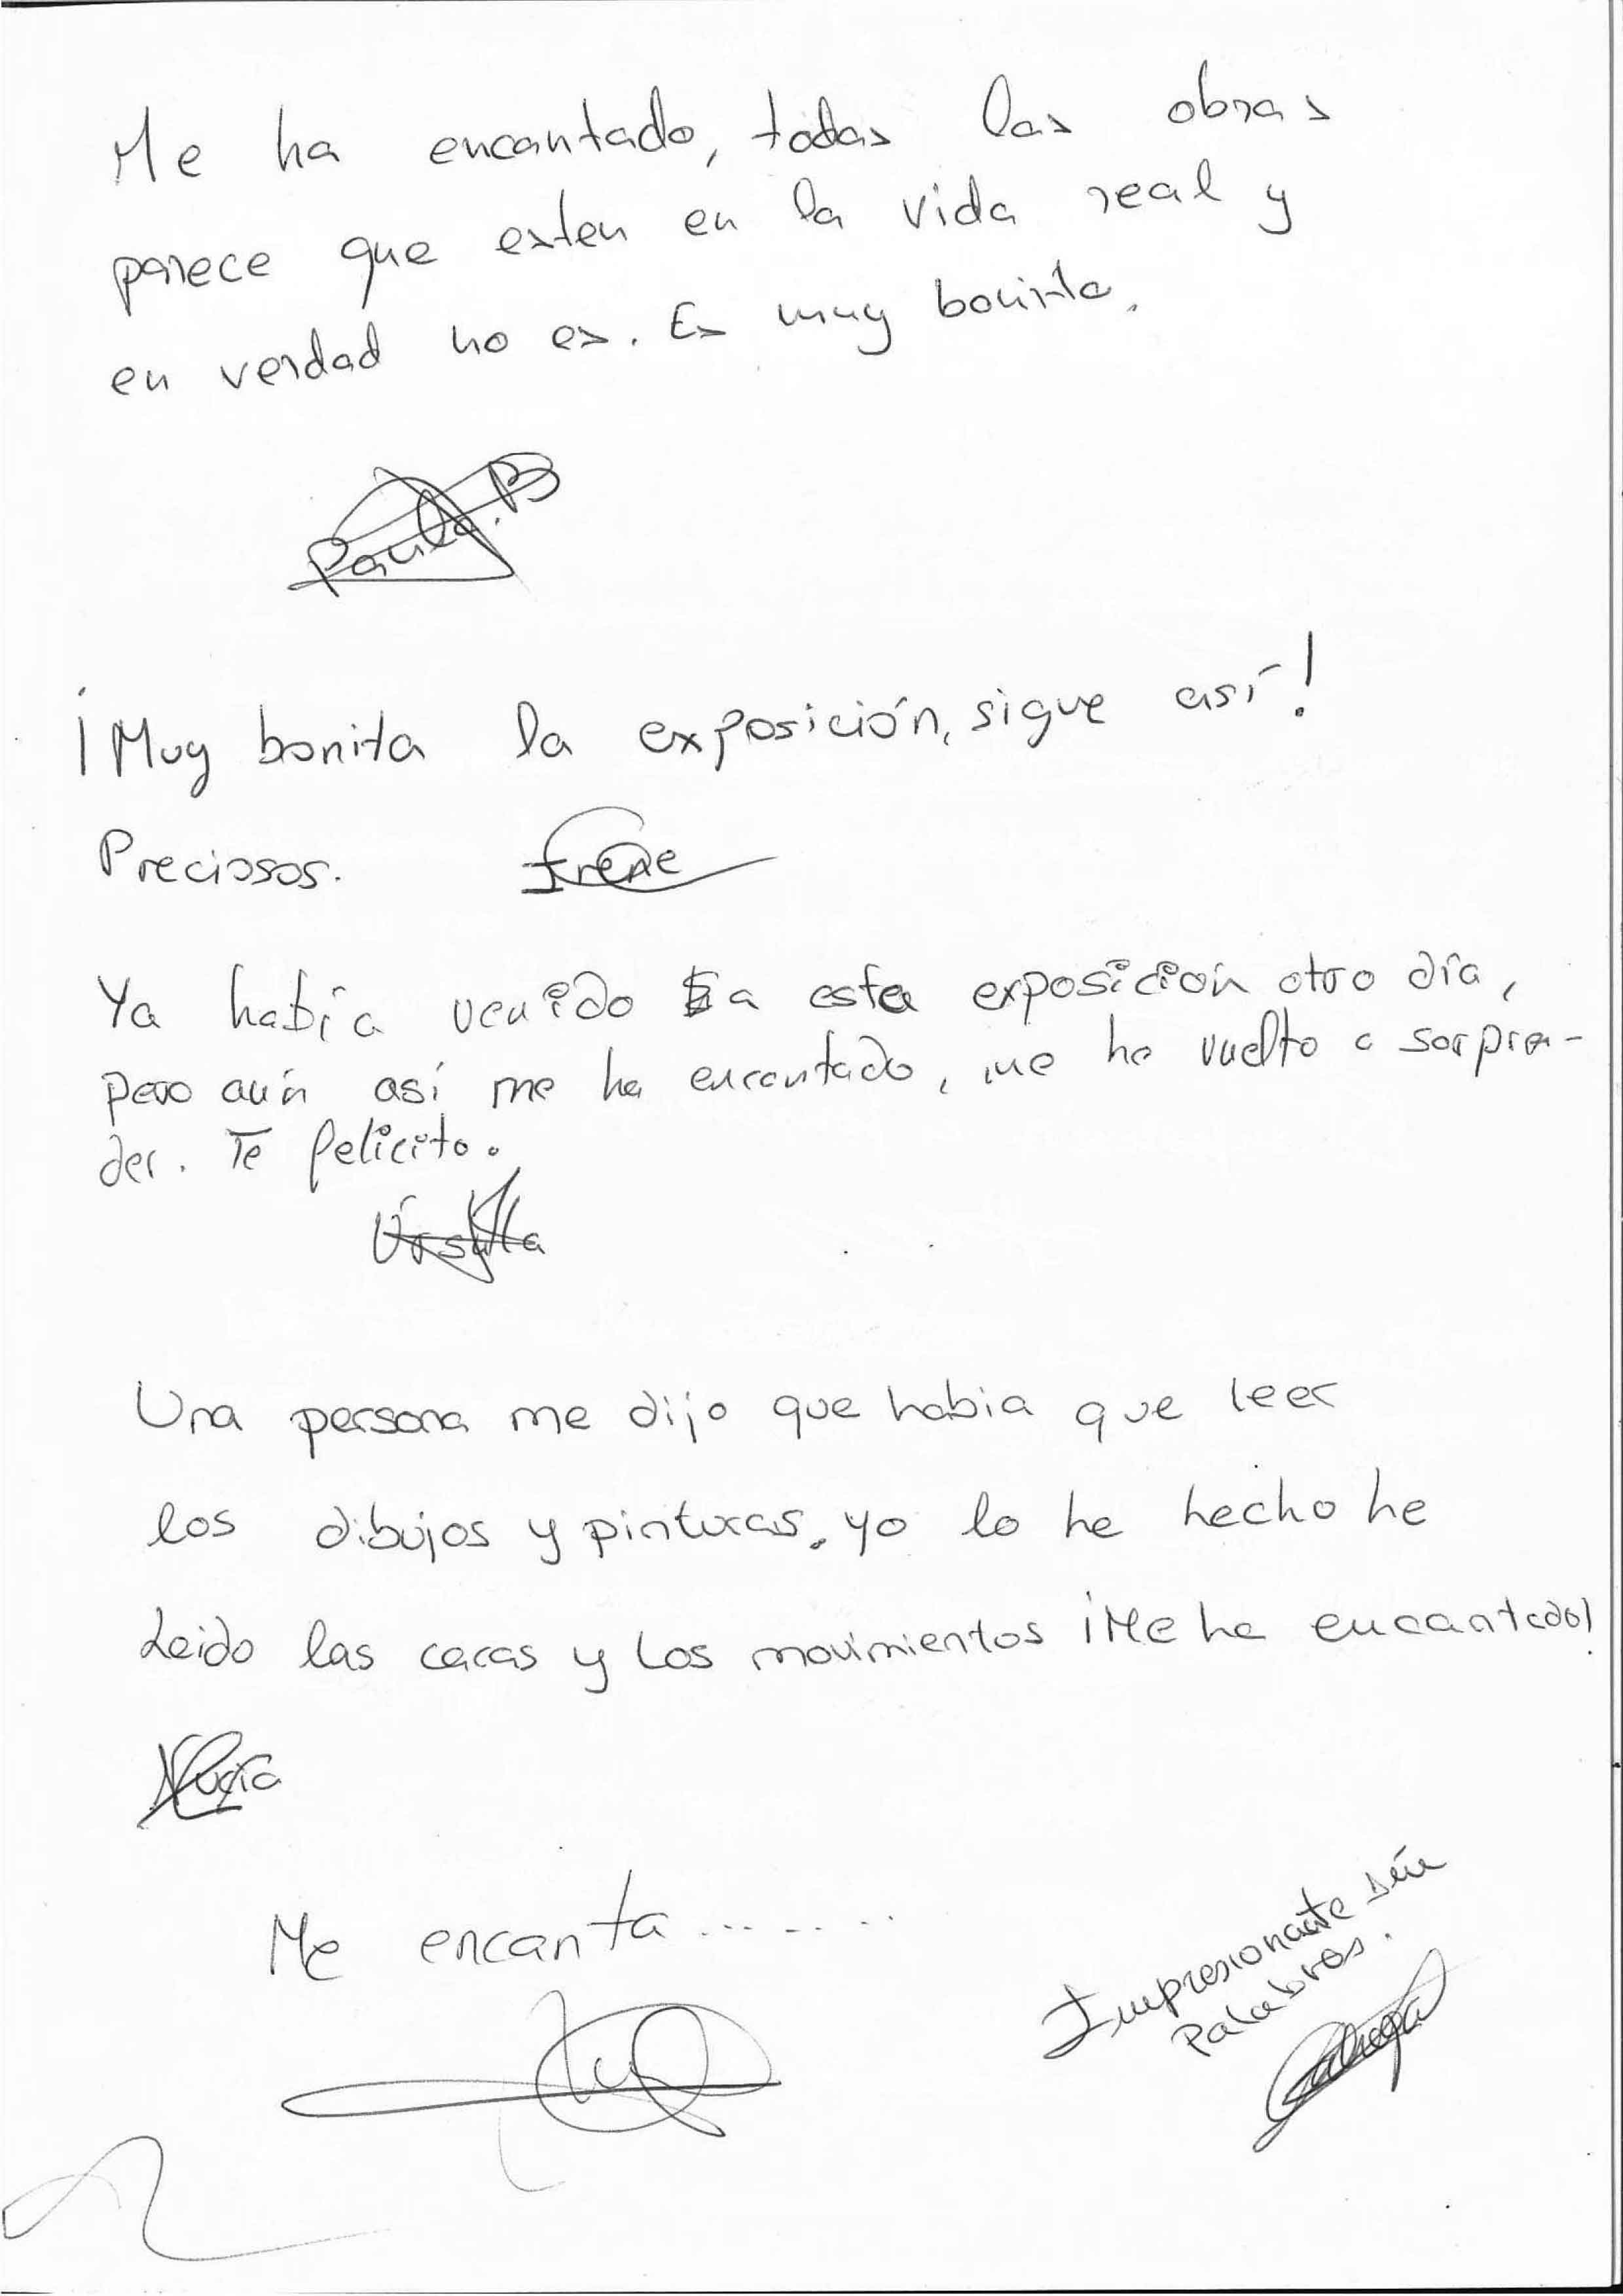 Me ha encantado, todas las obras
parece que esten en la vida real y
en verdad no es. Es muy bonista.
Paula.B
¡Muy bonita la exposición, sigue así!
Preciosos. Irene
Ya había venido a esta exposición otro día,
pero aún así me ha encantado, me ha vuelto a sorpren-
der. Te felicito.
Úrsula
Una persona me dijo que habia que leer
los dibujos y pinturas. yo lo he hecho he
Leido las caras y los movimientos ¡Me ha encantado!
Me encanta........
Impresionante sin
Palabras.